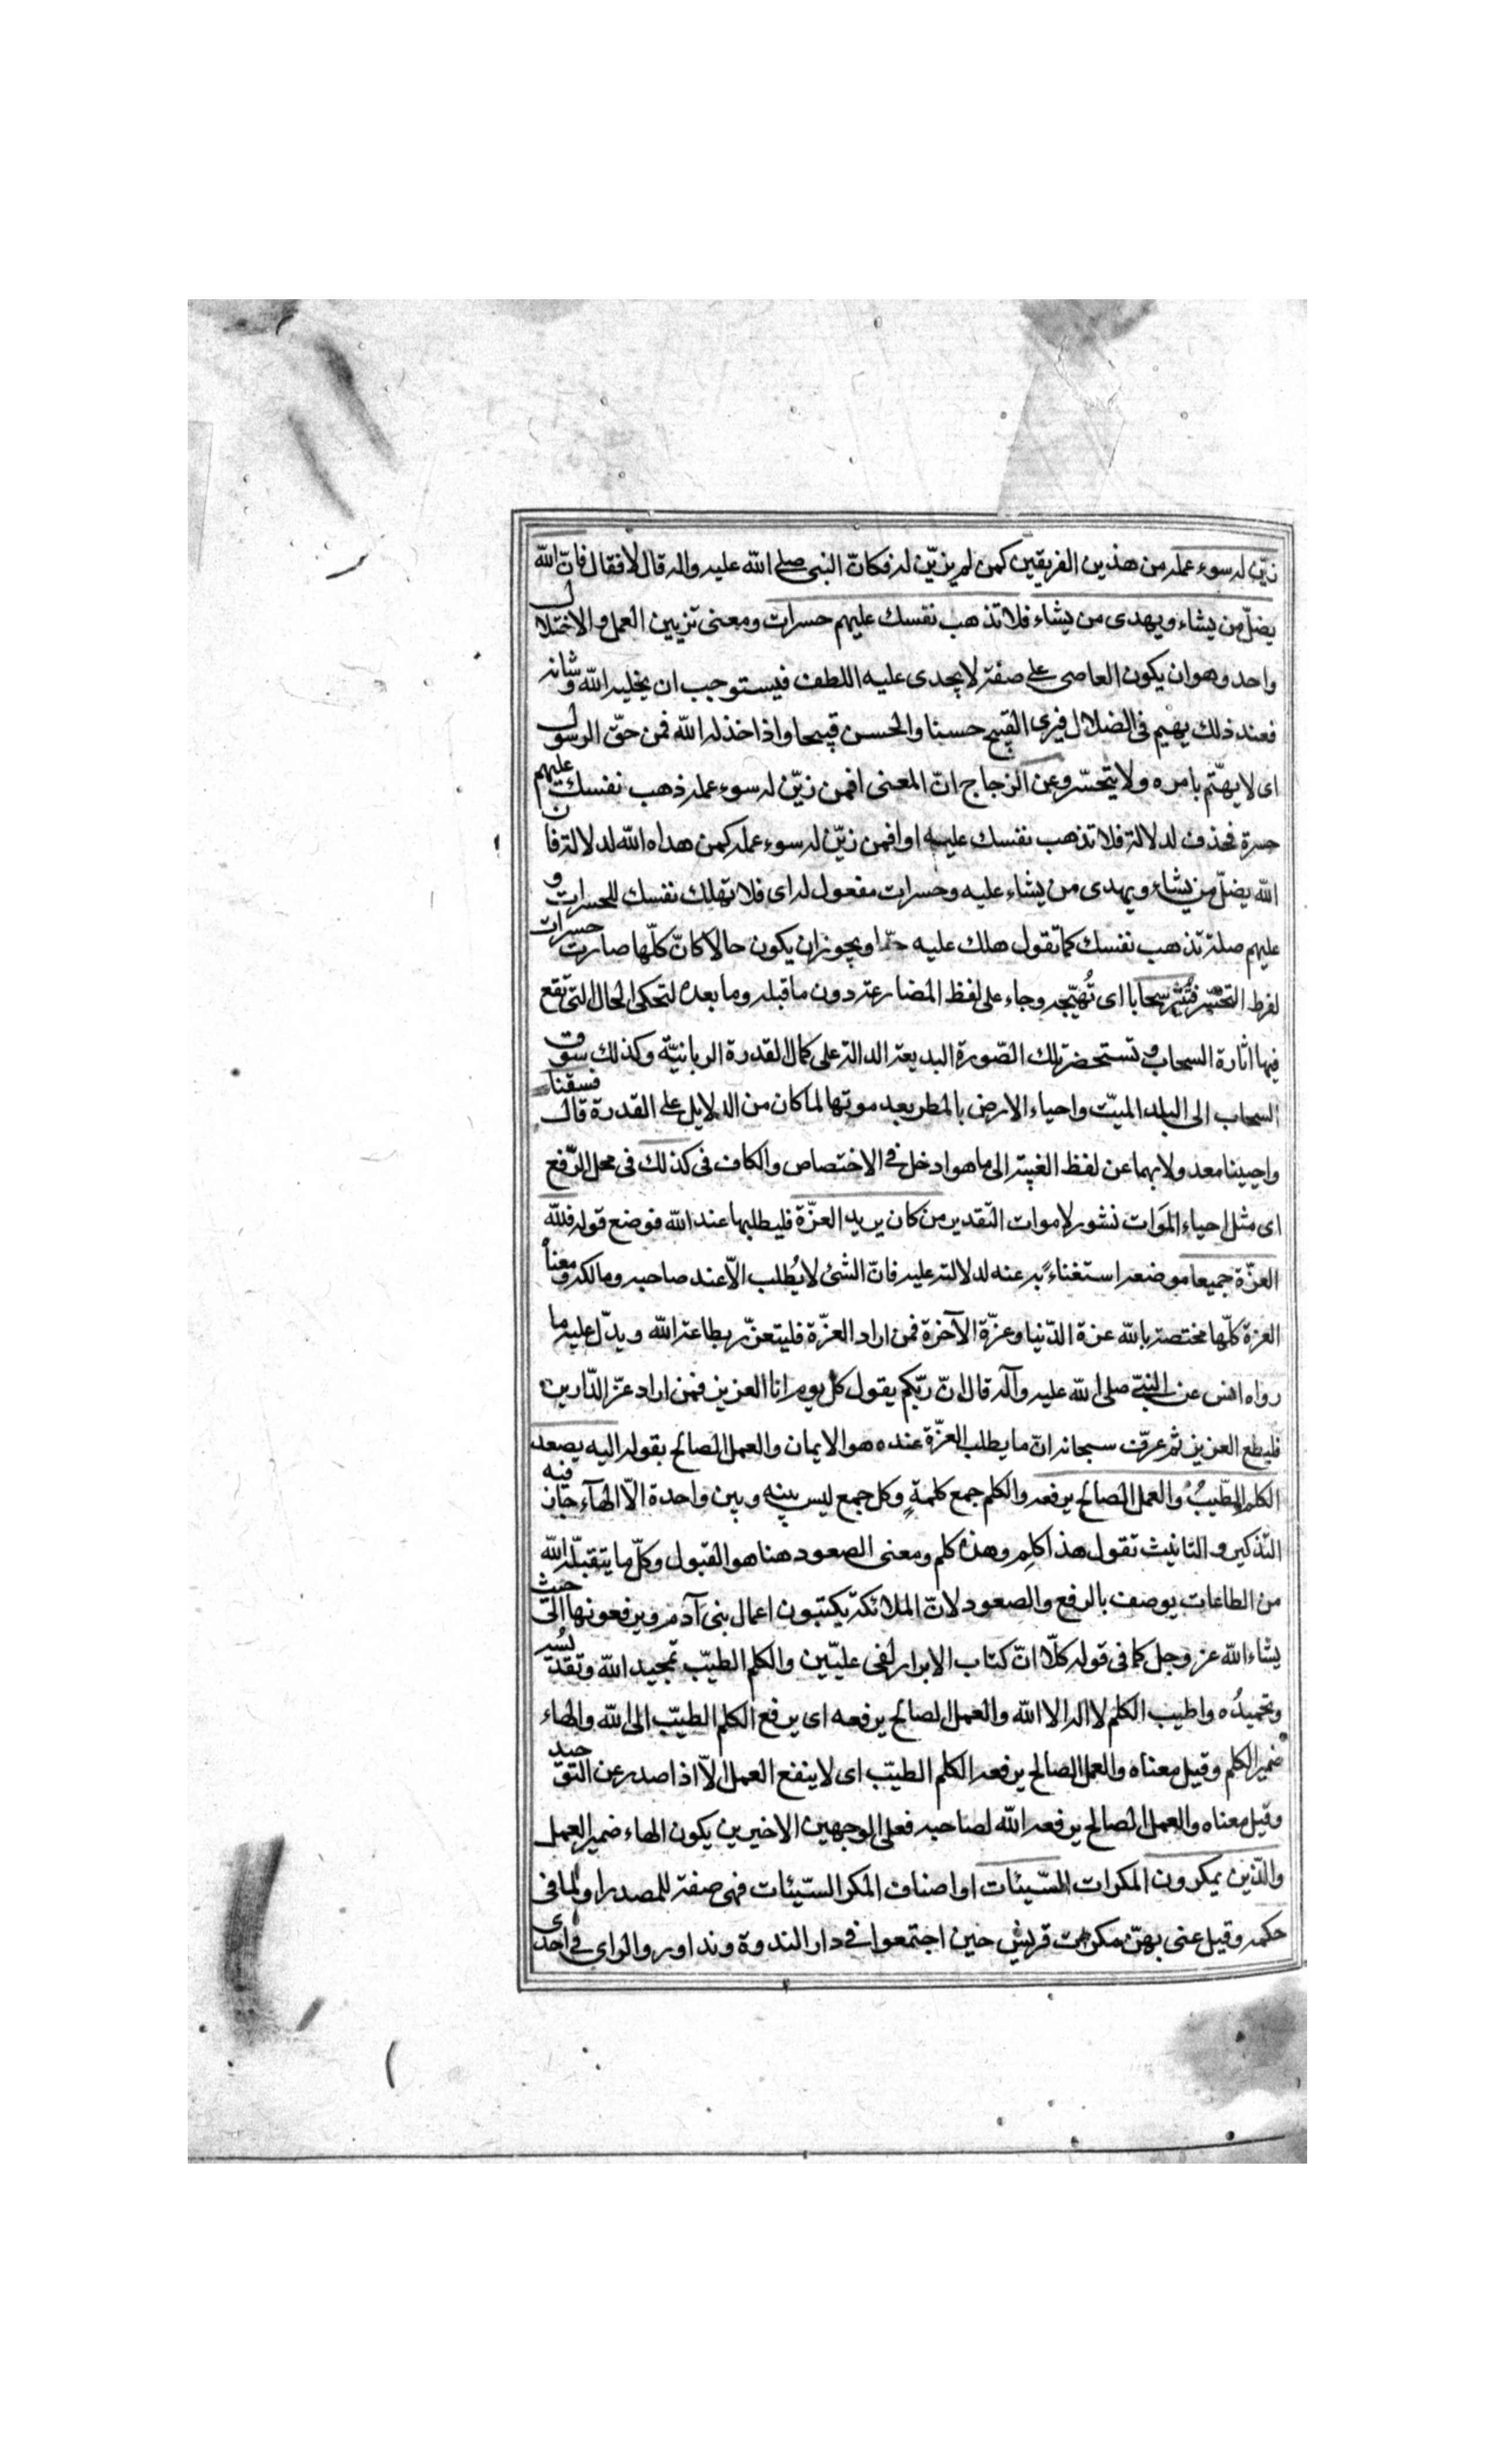 زيّن له سوء عمله من هذين الفريقين كمن لم يزيّن له فكانّ النبى صلى الله عليه واله قال لا فقال فانّ الله
يضلّ من يشاء ويهدى من يشاء فلا تذهب نفسك عليهم حسرات ومعنى تزيين العمل والاضلال
واحد وهو ان يكون العاصى على صفة لا يجدى عليه اللطف فيستوجب ان يخليه الله وشانه
فعند ذلك يهيم فى الضلال فيرى القبيح حسنا والحسن قبيحا واذا خذله الله فمن حقّ الرسول
اى لا يهتّم بامره ولا يتحسّر وعن الزجاج انّ المعنى افمن زيّن له سوء عمله ذهب نفسك عليهم
حسرة فحذف لدلالة فلا تذهب نفسك عليه او افمن زيّن له سوء عمله كمن هداه الله لدلالة فان
الله يضلّ من يشاء ويهدى من يشاء عليه وحسرات مفعول له اى فلا تهلك نفسك للحسرات و
عليهم صلة تذهب نفسك كما تقول هلك عليه حبّا ويجوز ان يكون حالا كانّ كلّها صارت حسرات
لفرط التحسّر فتُثير سحابا اى تُهيّجه وجاء على لفظ المضارعة دون ما قبله وما بعده لتحكى الحال التى تقع
فيها اثارة السحاب و تستحضر تلك الصّورة البديعة الدالة على كمال القدرة الربانيّة وكذلك سوق
السحاب الى البلد الميّت واحياء الارض بالمطر بعد موتها لما كان من الدلايل على القدرة قال فسقناه
واحيينا معدولا بهما عن لفظ الغيبة الى ما هو ادخل فى الاختصاص والكاف فى كذلك فى محل الرّفع
اى مثل احياء المَوات نشور لاموات التقدير من كان يريد العزّة فليطلبها عند الله فوضع قوله فلله
العزّة جميعا موضعه استغناءً به عنه لدلالته عليه فانّ الشئ لا يُطلب الاّ عند صاحبه ومالكه ومعناه
العزة كلّها مختصة بالله عزة الدّنيا وعزّة الآخرة فمن اراد العزّة فليتعزّز بطاعة الله ويدلّ عليه ما
رواه انس عن النبىّ صلى الله عليه وآله قال انّ ربّكم يقول كل يوم انا العزيز فمن اراد عزّ الدّارين
فليطع العزيز ثم عرّف سبحانه انّ ما يطلب العزّة عنده هو الايمان والعمل الصالح بقوله اليه يصعد
الكلم الطّيبُ والعمل الصالح يرفعه والكلم جمع كلمةٍ وكل جمع ليس بينه وبين واحدة الاّ الهآء جاز فيه
التذكير و التانيث تقول هذا كلِم وهذه كلم ومعنى الصعود هنا هو القبول وكلّ ما يتقبّله الله
من الطاعات يوصف بالرفع والصعود لانّ الملائكة يكتبون اعمال بنى آدم ويرفعونها الى حيث
يشاء الله عز وجل كما فى قوله كلّا انّ كتاب الابرار لفى عليّين والكلم الطيّب تمجيد الله وتقديسُه
وتحميدُه واطيب الكلم لا اله الا الله والعمل الصالح يرفعه اى يرفع الكلم الطيّب الى الله والهاء
ضمير الكلم وقيل معناه والعمل الصالح يرفعه الكلم الطيّب اى لا ينفع العمل الاّ اذا صدر عن التوحيد
وقيل معناه والعمل الصالح يرفعه الله لصاحبه فعلى الوجهين الاخيرين يكون الهاء ضمير العمل
والذين يمكرون المكرات السّيئات او اصناف المكر السّيئات فهى صفة للمصدر او لما فى
حكمه وقيل عنى بهنّ مكرات قريش حين اجتمعوا فى دار الندوة وتداوروا الراى فى احدى